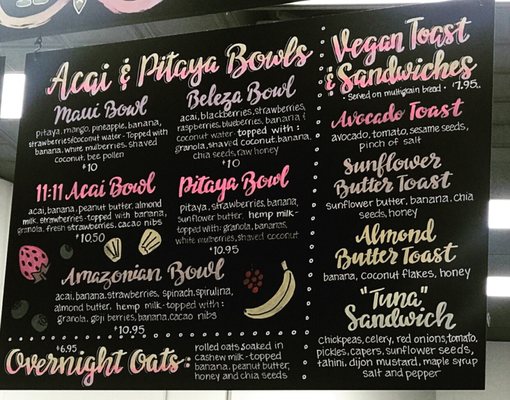 Acai & Pitaya Bowls
Maui Bowl
pitaya, mango, pineapple, banana,
strawberries/coconut water - Topped with
banana, white mulberries, shaved
coconut, bee pollen
$10
Beleza Bowl
acai, blackberries, strawberries,
raspberries, blueberries, banana &
coconut water - topped with:
granola, shaved coconut, banana,
chia seeds, raw honey
$10
11:11 Acai Bowl
acai, banana, peanut butter, almond
milk, strawberries - topped with banana,
granola, fresh strawberries, cacao nibs
$10.50
Pitaya Bowl
pitaya, strawberries, banana,
sunflower butter, hemp milk -
topped with: granola, bananas,
white mulberries, shaved coconut
$10.95
Amazonian Bowl
acai, banana, strawberries, spinach, spirulina,
almond butter, hemp milk - topped with:
granola, goji berries, banana, cacao nibs
$10.95
$6.95
Overnight Oats:
rolled oats soaked in
cashew milk - topped
banana, peanut butter,
honey and chia seeds
Vegan Toast
& Sandwiches
• Served on multigrain bread • $7.95
Avocado Toast
avocado, tomato, sesame seeds,
pinch of salt
Sunflower
Butter Toast
sunflower butter, banana, chia
seeds, honey
Almond
Butter Toast
banana, coconut flakes, honey
"Tuna"
Sandwich
chickpeas, celery, red onions, tomato,
pickles, capers, sunflower seeds,
tahini, dijon mustard, maple syrup
salt and pepper